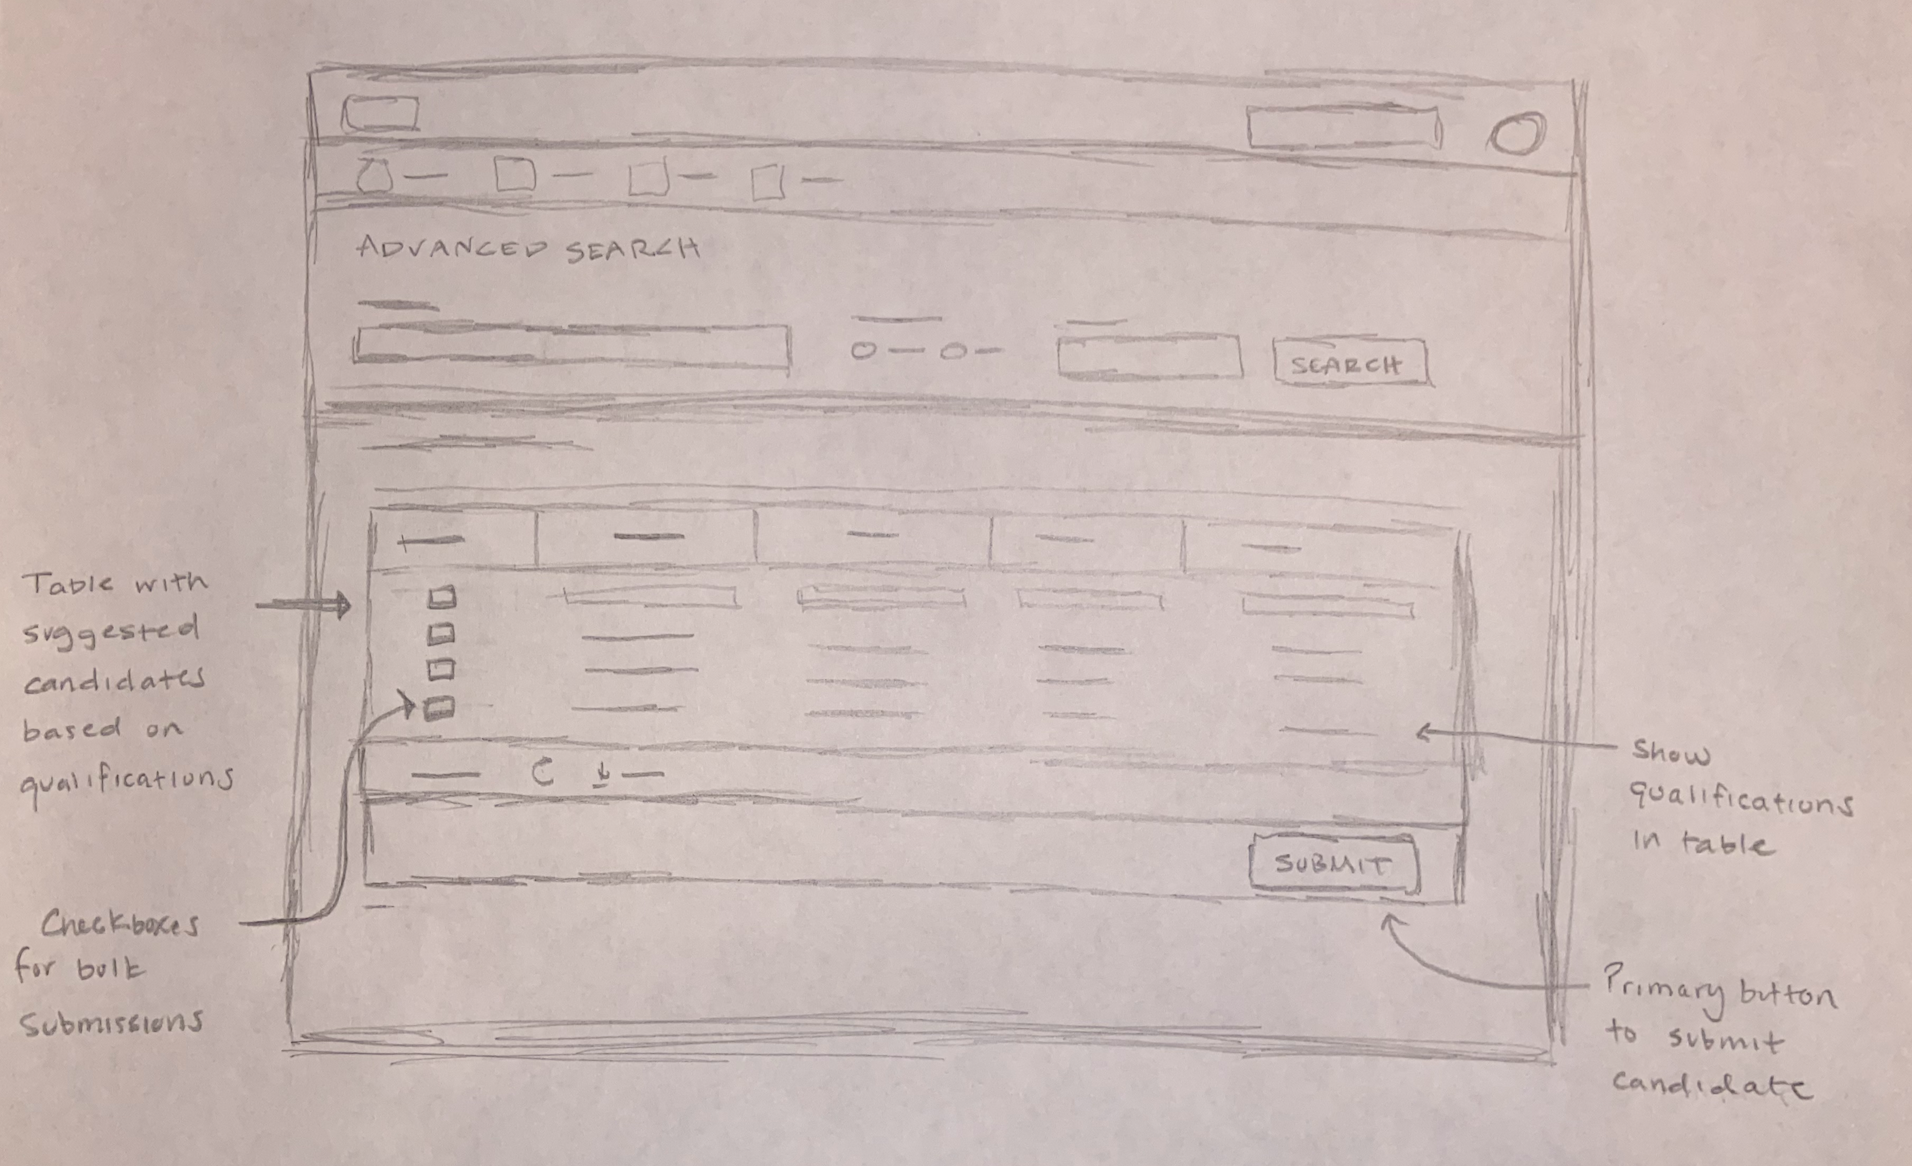 ADVANCED SEARCH
SEARCH
Table with
suggested
candidates
based on
qualifications
Show
qualifications
in table
SUBMIT
Checkboxes
for bulk
submissions
Primary button
to submit
candidate